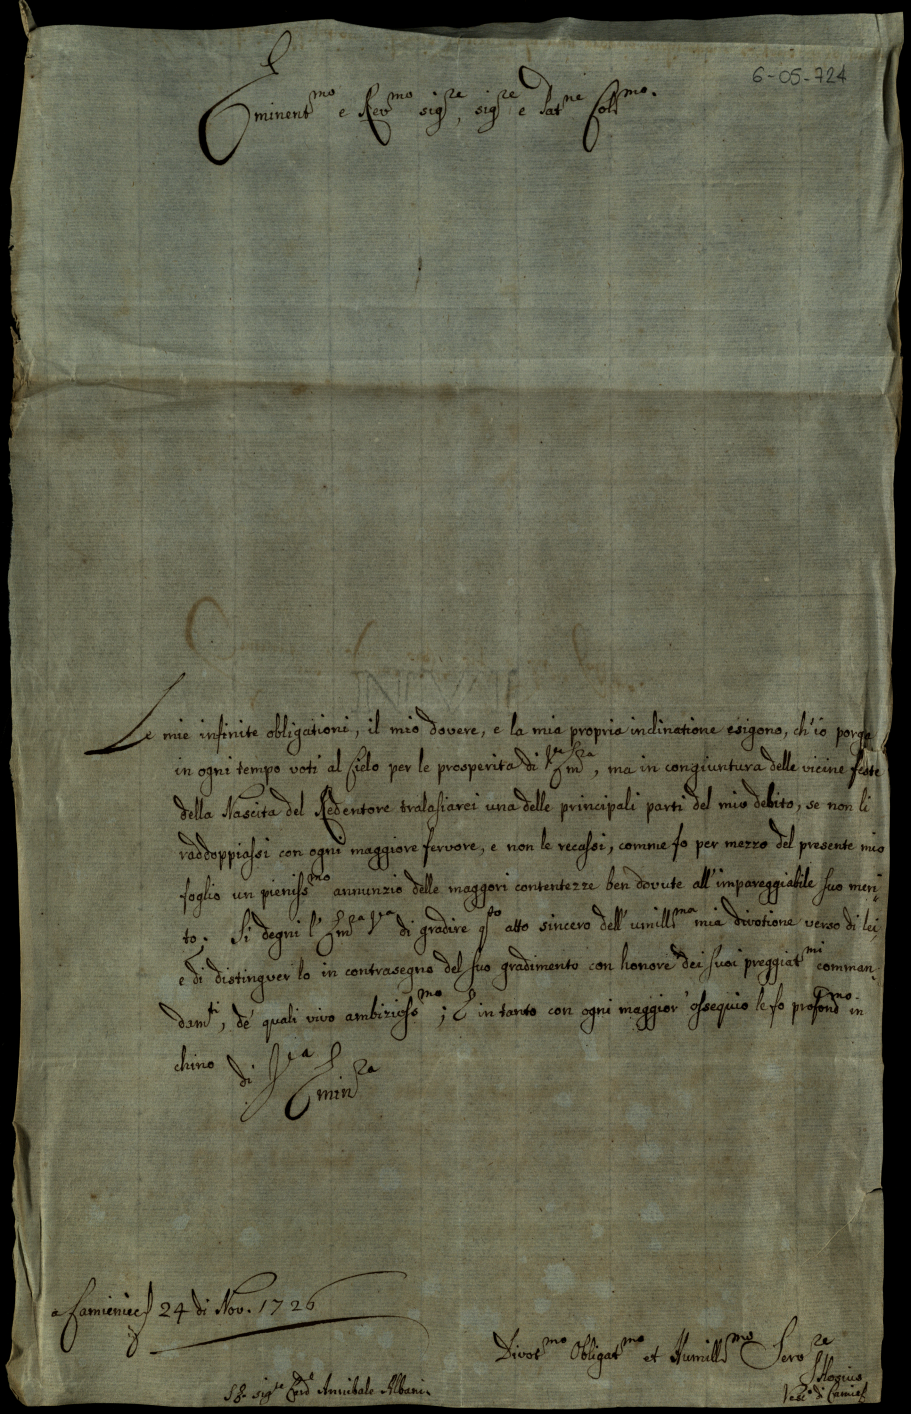 6-05-724
Eminent.mo e Rev.mo sig.re, sig.re e Pat.ne Coll.mo.
Le mie infinite obligationi, il mio dovere, e la mia propria inclinatione esigono, ch'io porga
in ogni tempo voti al Cielo per le prosperità di V.ra Em.za, ma in congiuntura delle vicine feste
della Nascita del Redentore tralasiarei una delle principali parti del mio debito, se non li
raddoppiassi con ogni maggiore fervore, e non le recassi, comme fo per mezzo del presente mio
foglio un pieniss.mo annunzio delle maggori contentezze ben dovute all'impareggiabile suo meri=
to. Si degni l'Em.za V.ra di gradire q.sto atto sincero dell'umill.ma mia divotione verso di lei,
e di distinguerlo in contrasegno del suo gradimento con honore dei suoi preggiat.mi comman=
dam.ti, de' quali vivo ambizioss.mo; E in tanto con ogni maggior'ossequio le fo profond.mo in
chino
di V.ra Emin.za
a Camieniec 24 di Nov. 1726
Divot.mo Obligat.mo et Humill.mo Servo.re
Vesc.o di Camie
S.r sig.re Card.e Annibale Albani.